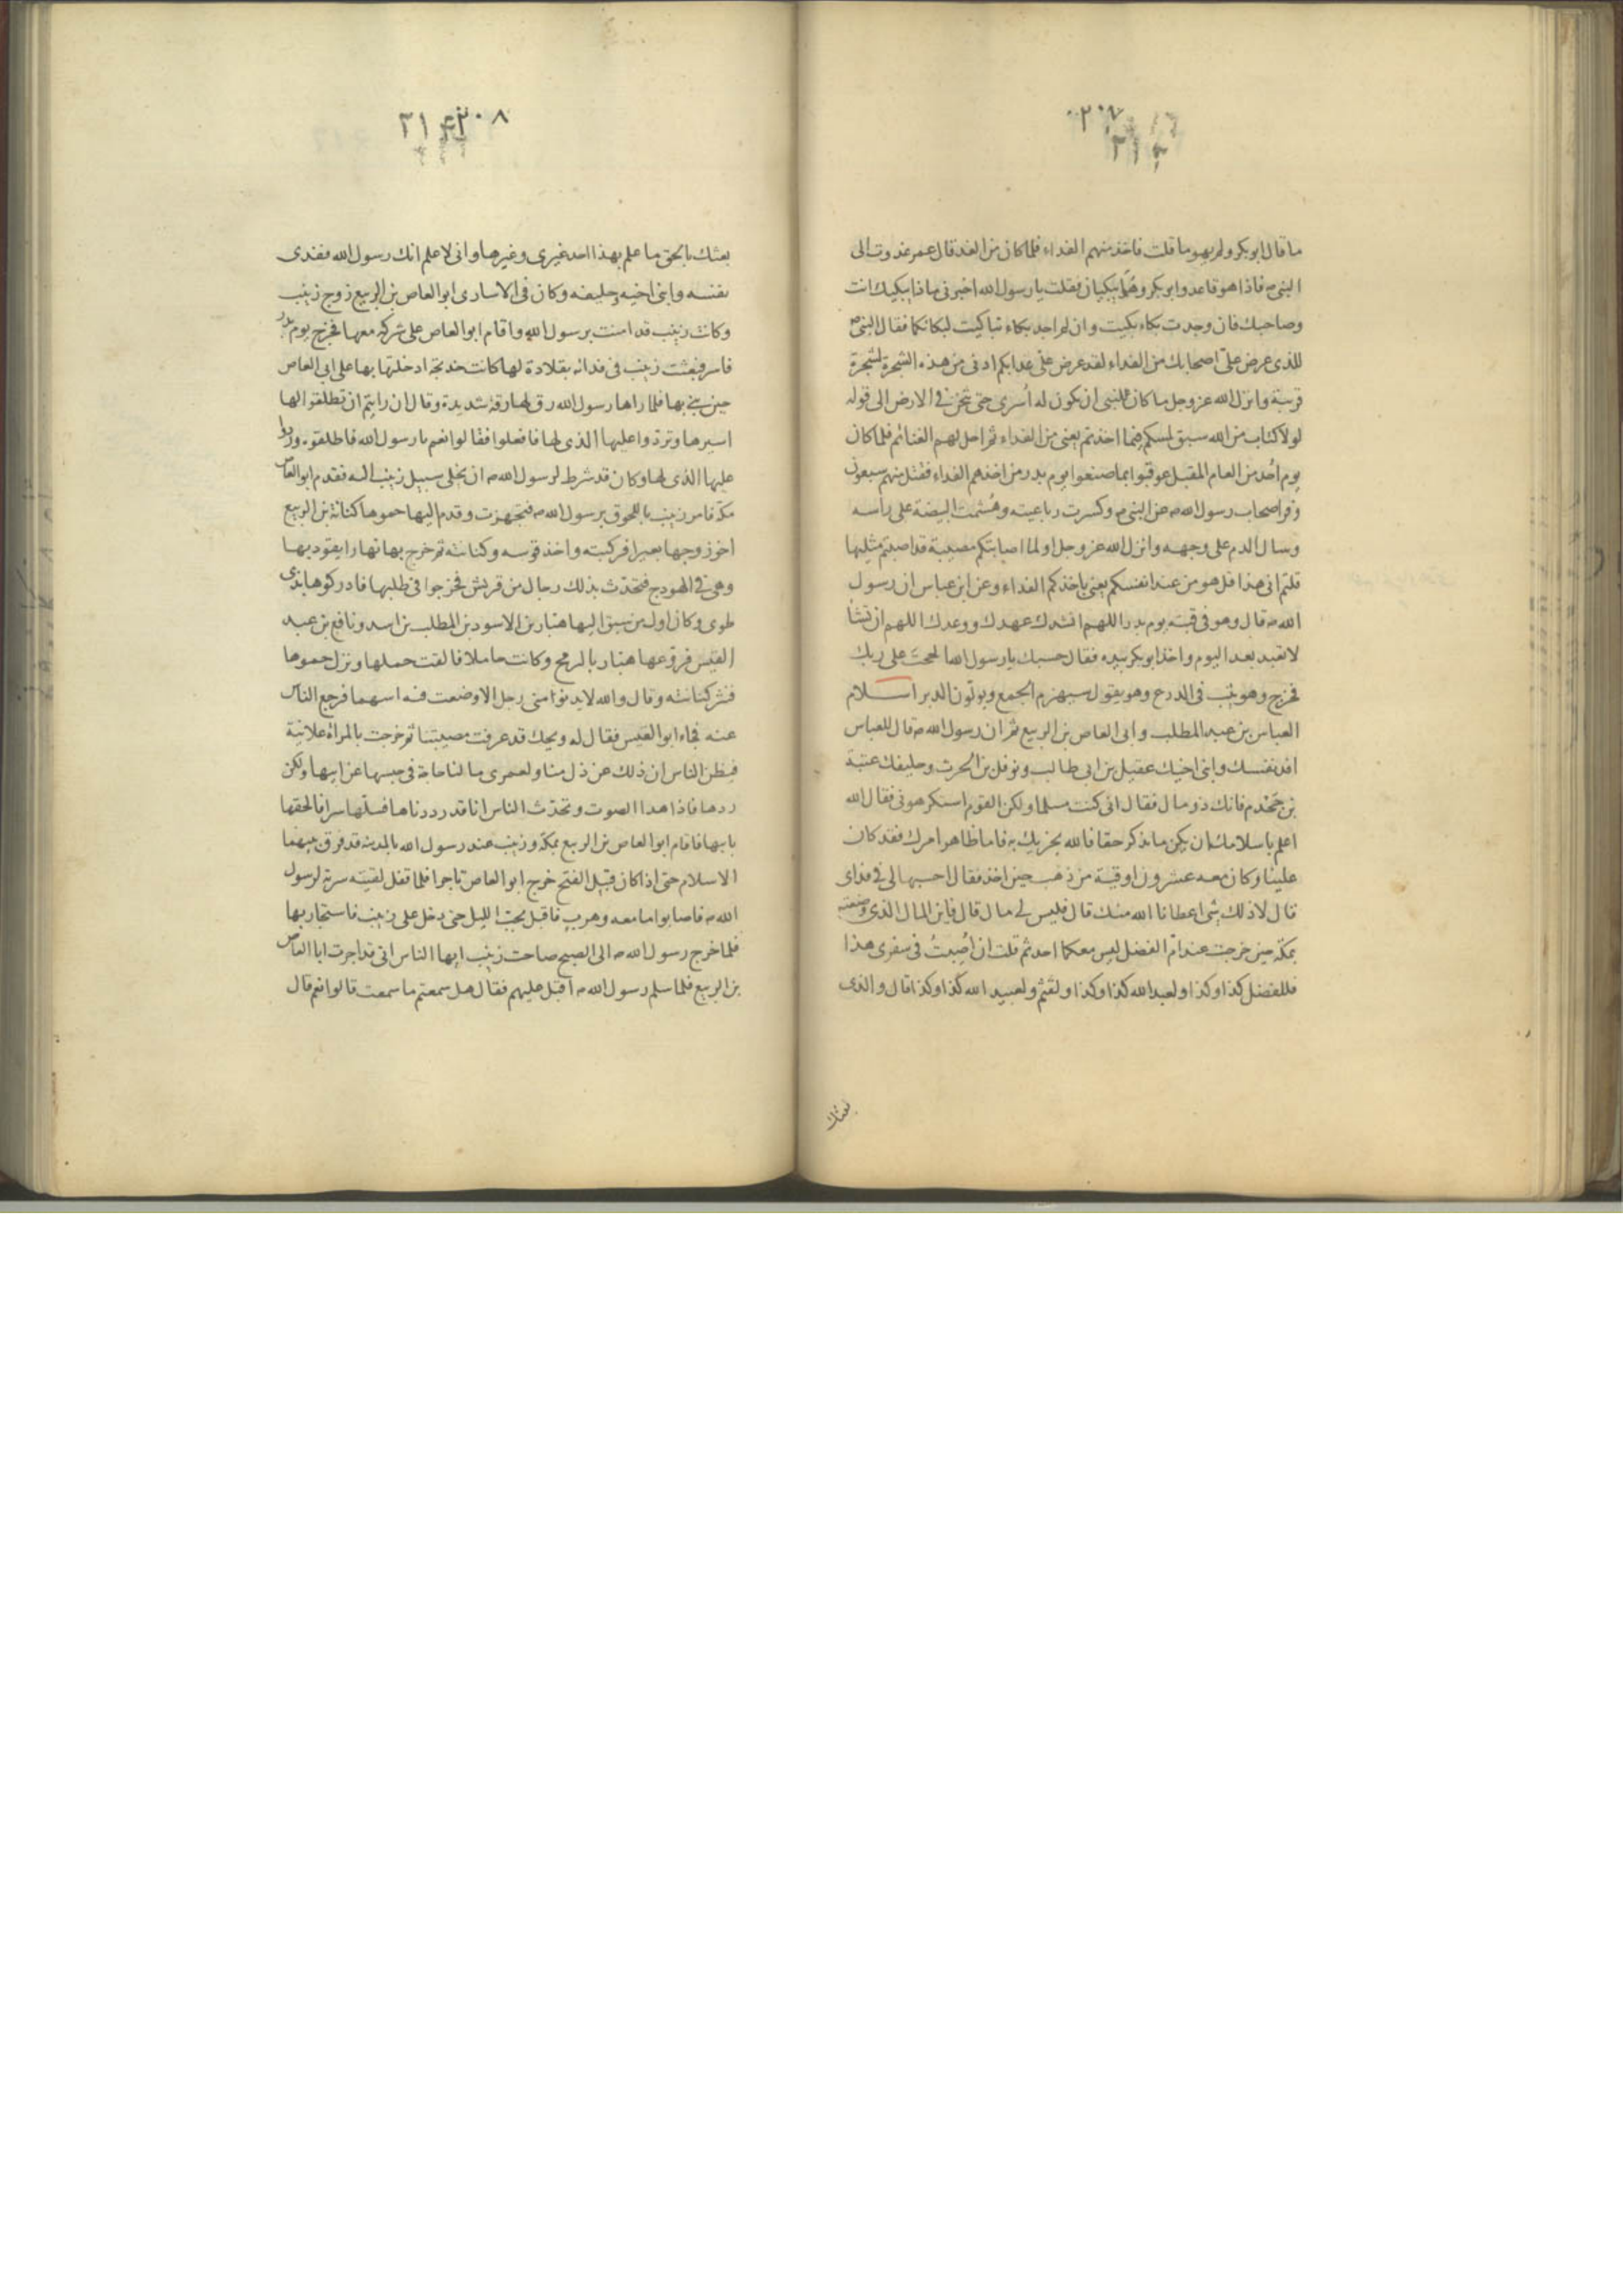 ٢٠٧
٢١٣
ما قال ابو بكر ولم يهو ما قلت فاخذ منهم الفداء فلما كان من الغد قال عمر غدوت الى
النبى ص فاذا هو قاعد وابو بكر وهما يبكيان فقلت يا رسول الله اخبرنى ماذا يبكيك انت
وصاحبك فان وجدت بكاء بكيت وان لم اجد بكاء تباكيت لبكائكما فقال النبى ص
للذى عرض على اصحابك من الفداء لقد عرض على عذابكم ادنى من هذه الشجرة لشجرة
قريبة وانزل الله عز وجل ما كان للنبى ان يكون له اسرى حتى يثخن فى الارض الى قوله
لولا كتاب من الله سبق لمسكم فيما اخذتم يعنى من الفداء ثم احل لهم الغنائم فلما كان
يوم احد من العام المقبل عوقبوا بما صنعوا يوم بدر من اخذهم الفداء فقتل منهم سبعون
وفر اصحاب رسول الله ص عن النبى ص وكسرت رباعيته وهُشمت البيضة على راسه
وسال الدم على وجهه وانزل الله عز وجل اولما اصابتكم مصيبة قد اصبتم مثليها
قلتم انى هذا قل هو من عند انفسكم يعنى باخذكم الفداء وعن ابن عباس ان رسول
الله ص قال وهو فى قبته يوم بدر اللهم انشدك عهدك ووعدك اللهم ان تشا
لا تعبد بعد اليوم واخذ ابو بكر بيده فقال حسبك يا رسول الله الححت على ربك
فخرج وهو يثب فى الدرع وهو يقول سيهزم الجمع ويولون الدبر اسلام
العباس بن عبد المطلب وابى العاص بن الربيع ثم ان رسول الله ص قال للعباس
افد نفسك وابنى اخيك عقيل بن ابى طالب ونوفل بن الحرث وحليفك عتبة
بن جحدم فانك ذو مال فقال انى كنت مسلما ولكن القوم استكرهونى فقال الله
اعلم باسلامك ان يكن ما تذكر حقا فالله يجزيك به فاما ظاهر امرك فقد كان
علينا وكان معه عشرون اوقية من ذهب حين اخذ فقال احسبها لى فى فداى
قال لا ذلك شى اعطانا الله منك قال فليس لى مال قال فاين المال الذى وضعته
بمكة حين خرجت عند ام الفضل ليس معكما احد ثم قلت ان اُصبتُ فى سفرى هذا
فللفضل كذا وكذا ولعبد الله كذا وكذا ولقثم ولعبيد الله كذا وكذا قال والذى
بعثك
٢٠٨
٢١٤
بعثك بالحق ما علم بهذا احد غيرى وغيرها وانى لا علم انك رسول الله ففدى
نفسه وابنى اخيه وحليفه وكان فى الاسارى ابو العاص بن الربيع زوج زينب
وكانت زينب قد امنت برسول الله واقام ابو العاص على شركه معها فخرج يوم بدر
فاسر فبعثت زينب فى فدائه بقلادة لها كانت خديجة ادخلتها بها على ابى العاص
حين بنى بها فلما راها رسول الله رق لها رقة شديدة وقال ان رايتم ان تطلقوا لها
اسيرها وتردوا عليها الذى لها فافعلوا فقالوا نعم يا رسول الله فاطلقوه وردوا
عليها الذى لها وكان قد شرط لرسول الله ص ان يخلى سبيل زينب اليه فقدم ابو العاص
مكة فامر زينب باللحوق برسول الله ص فتجهزت وقدم اليها حموها كنانة بن الربيع
اخو زوجها بعيرا فركبته واخذ قوسه وكنانته ثم خرج بها نهارا يقود بها
وهى فى الهودج فتحدث بذلك رجال من قريش فخرجوا فى طلبها فادركوها بذى
طوى وكان اول من سبق اليها هبار بن الاسود بن المطلب بن اسد ونافع بن عبد
القيس فروعها هبار بالرمح وكانت حاملا فالقت حملها ونزل حموها
فنثر كنانته وقال والله لا يدنوا منى رجل الا وضعت فيه اسهما فرجع الناس
عنه فجاء ابو القيس فقال له ويحك قد عرفت مصيبتنا ثم خرجت بالمراة علانية
فيظن الناس ان ذلك عن ذل منا ولعمرى ما لنا حاجة فى حبسها عن ابيها ولكن
ردها فاذا هدا الصوت وتحدث الناس انا قد رددناها فسلها سرا فالحقها
بابيها فاقام ابو العاص بن الربيع بمكة وزينب عند رسول الله بالمدينه قد فرق بينهما
الاسلام حتى اذا كان قبيل الفتح خرج ابو العاص تاجرا فلما قفل لقيته سرية لرسول
الله ص فاصابوا ما معه وهرب فاقبل تحت الليل حتى دخل على زينب فاستجار بها
فلما خرج رسول الله ص الى الصبح صاحت زينب ايها الناس انى قد اجرت ابا العاص
بن الربيع فلما سلم رسول الله ص اقبل عليهم فقال هل سمعتم ما سمعت قالوا نعم قال